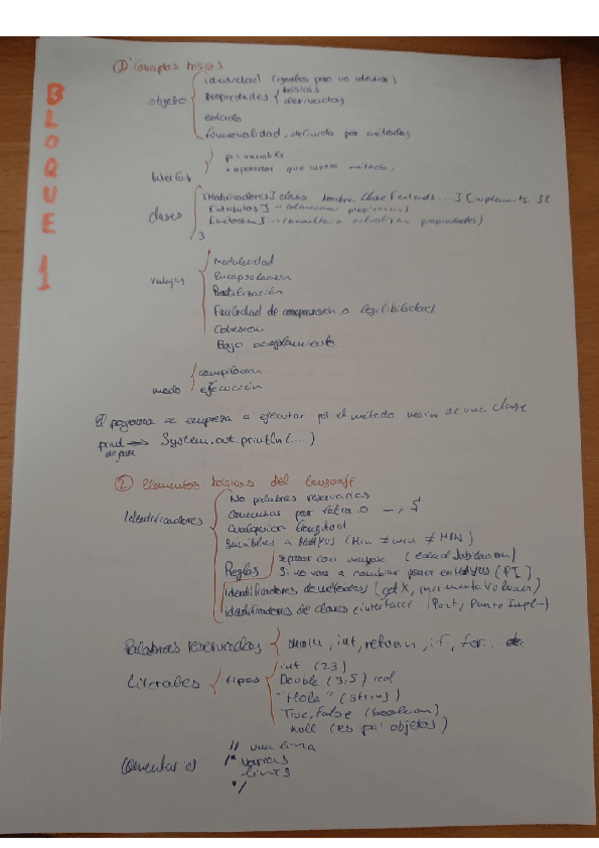 BLOQUE 1
① Conceptos básicos
objeto
identidad
propiedades { básicas
derivadas
estado
funcionalidad, definida por métodos
Interfaz
variable
clases
[Modificadores] class nombre Clase [extends ...] [implements
[Atributos]
[Métodos]
}
Ventajas
Modularidad
Encapsulación
Reutilización
Facilidad de comprensión o legibilidad
Cohesion
Bajo acoplamiento
modo
compilacion
ejecución
El programa se empieza a ejecutar por el método main de una clase
print => System.out.println(...)
de java
② Elementos básicos del lenguaje
Identificadores
No palabras reservadas
Comenzar por letra o _, $
Cualquier longitud
Sensibles a MAYUS (Min ≠ min ≠ MIN)
Reglas
separar con mayusc (edadJubilacion)
Si no vas a cambiar poner en MAYUS (PI)
identificadores de métodos (getX, incrementaVolumen)
identificadores de clases e interfaces (Port, PuntoImpl-)
Palabras reservadas { double, int, return, if, for...
Literales { tipos
int (23)
Double (3,5) real
"Hola" (String)
True, False (boolean)
null (es pa' objetos)
Comentarios
// una linea
/* varias
lineas
*/